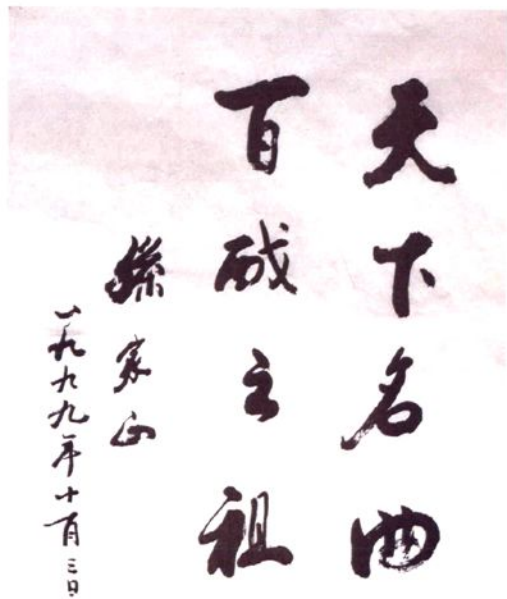 天下名曲
百戲之祖
孫家正
一九九九年十一月三日